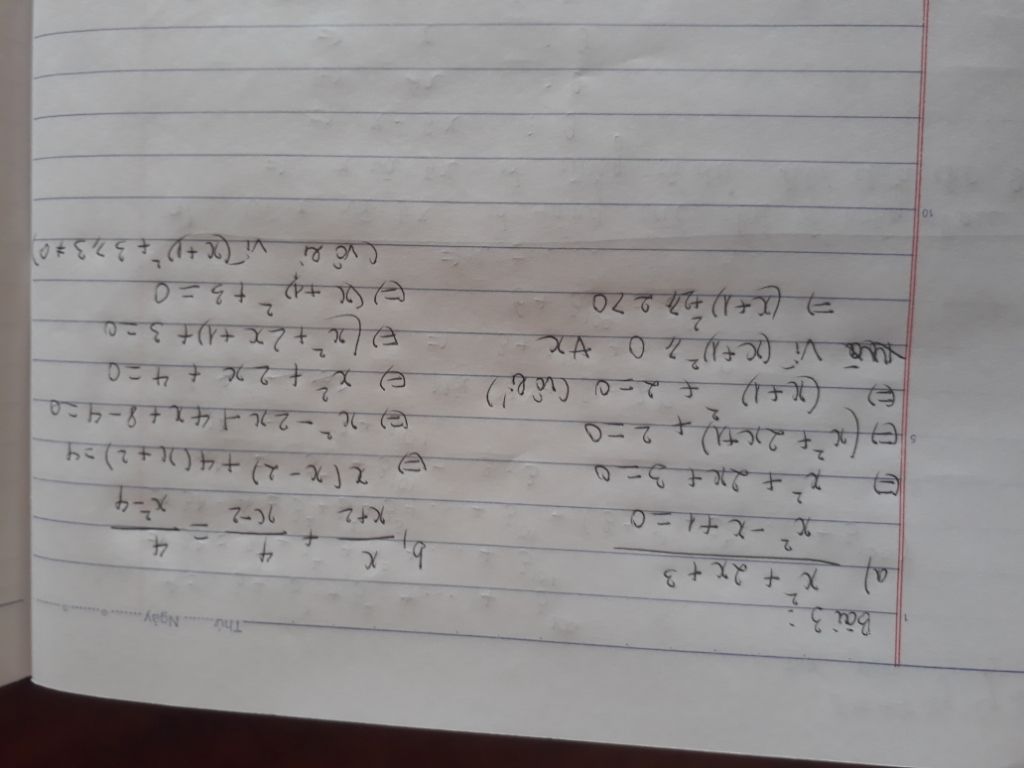 Thứ ........ Ngày ........
Bài 3:
a) x² + 2x + 3
x² - x + 1 = 0
⇔ x² + 2x + 3 = 0
⇔ (x² + 2x+1) + 2 = 0
⇔ (x+1)² + 2 = 0 (vô lí)
Vì (x+1)² ≥ 0 ∀x
⇒ (x+1)² + 2 ≥ 2 > 0
b, x/x+2 + 4/x-2 = 4/x²-4
⇔ x(x-2) + 4(x+2) = 4
⇔ x² - 2x + 4x + 8 - 4 = 0
⇔ x² + 2x + 4 = 0
⇔ (x² + 2x + 1) + 3 = 0
⇔ (x+1)² + 3 = 0
(vô lí vì (x+1)² + 3 ≥ 3 ≠ 0)
1
5
10